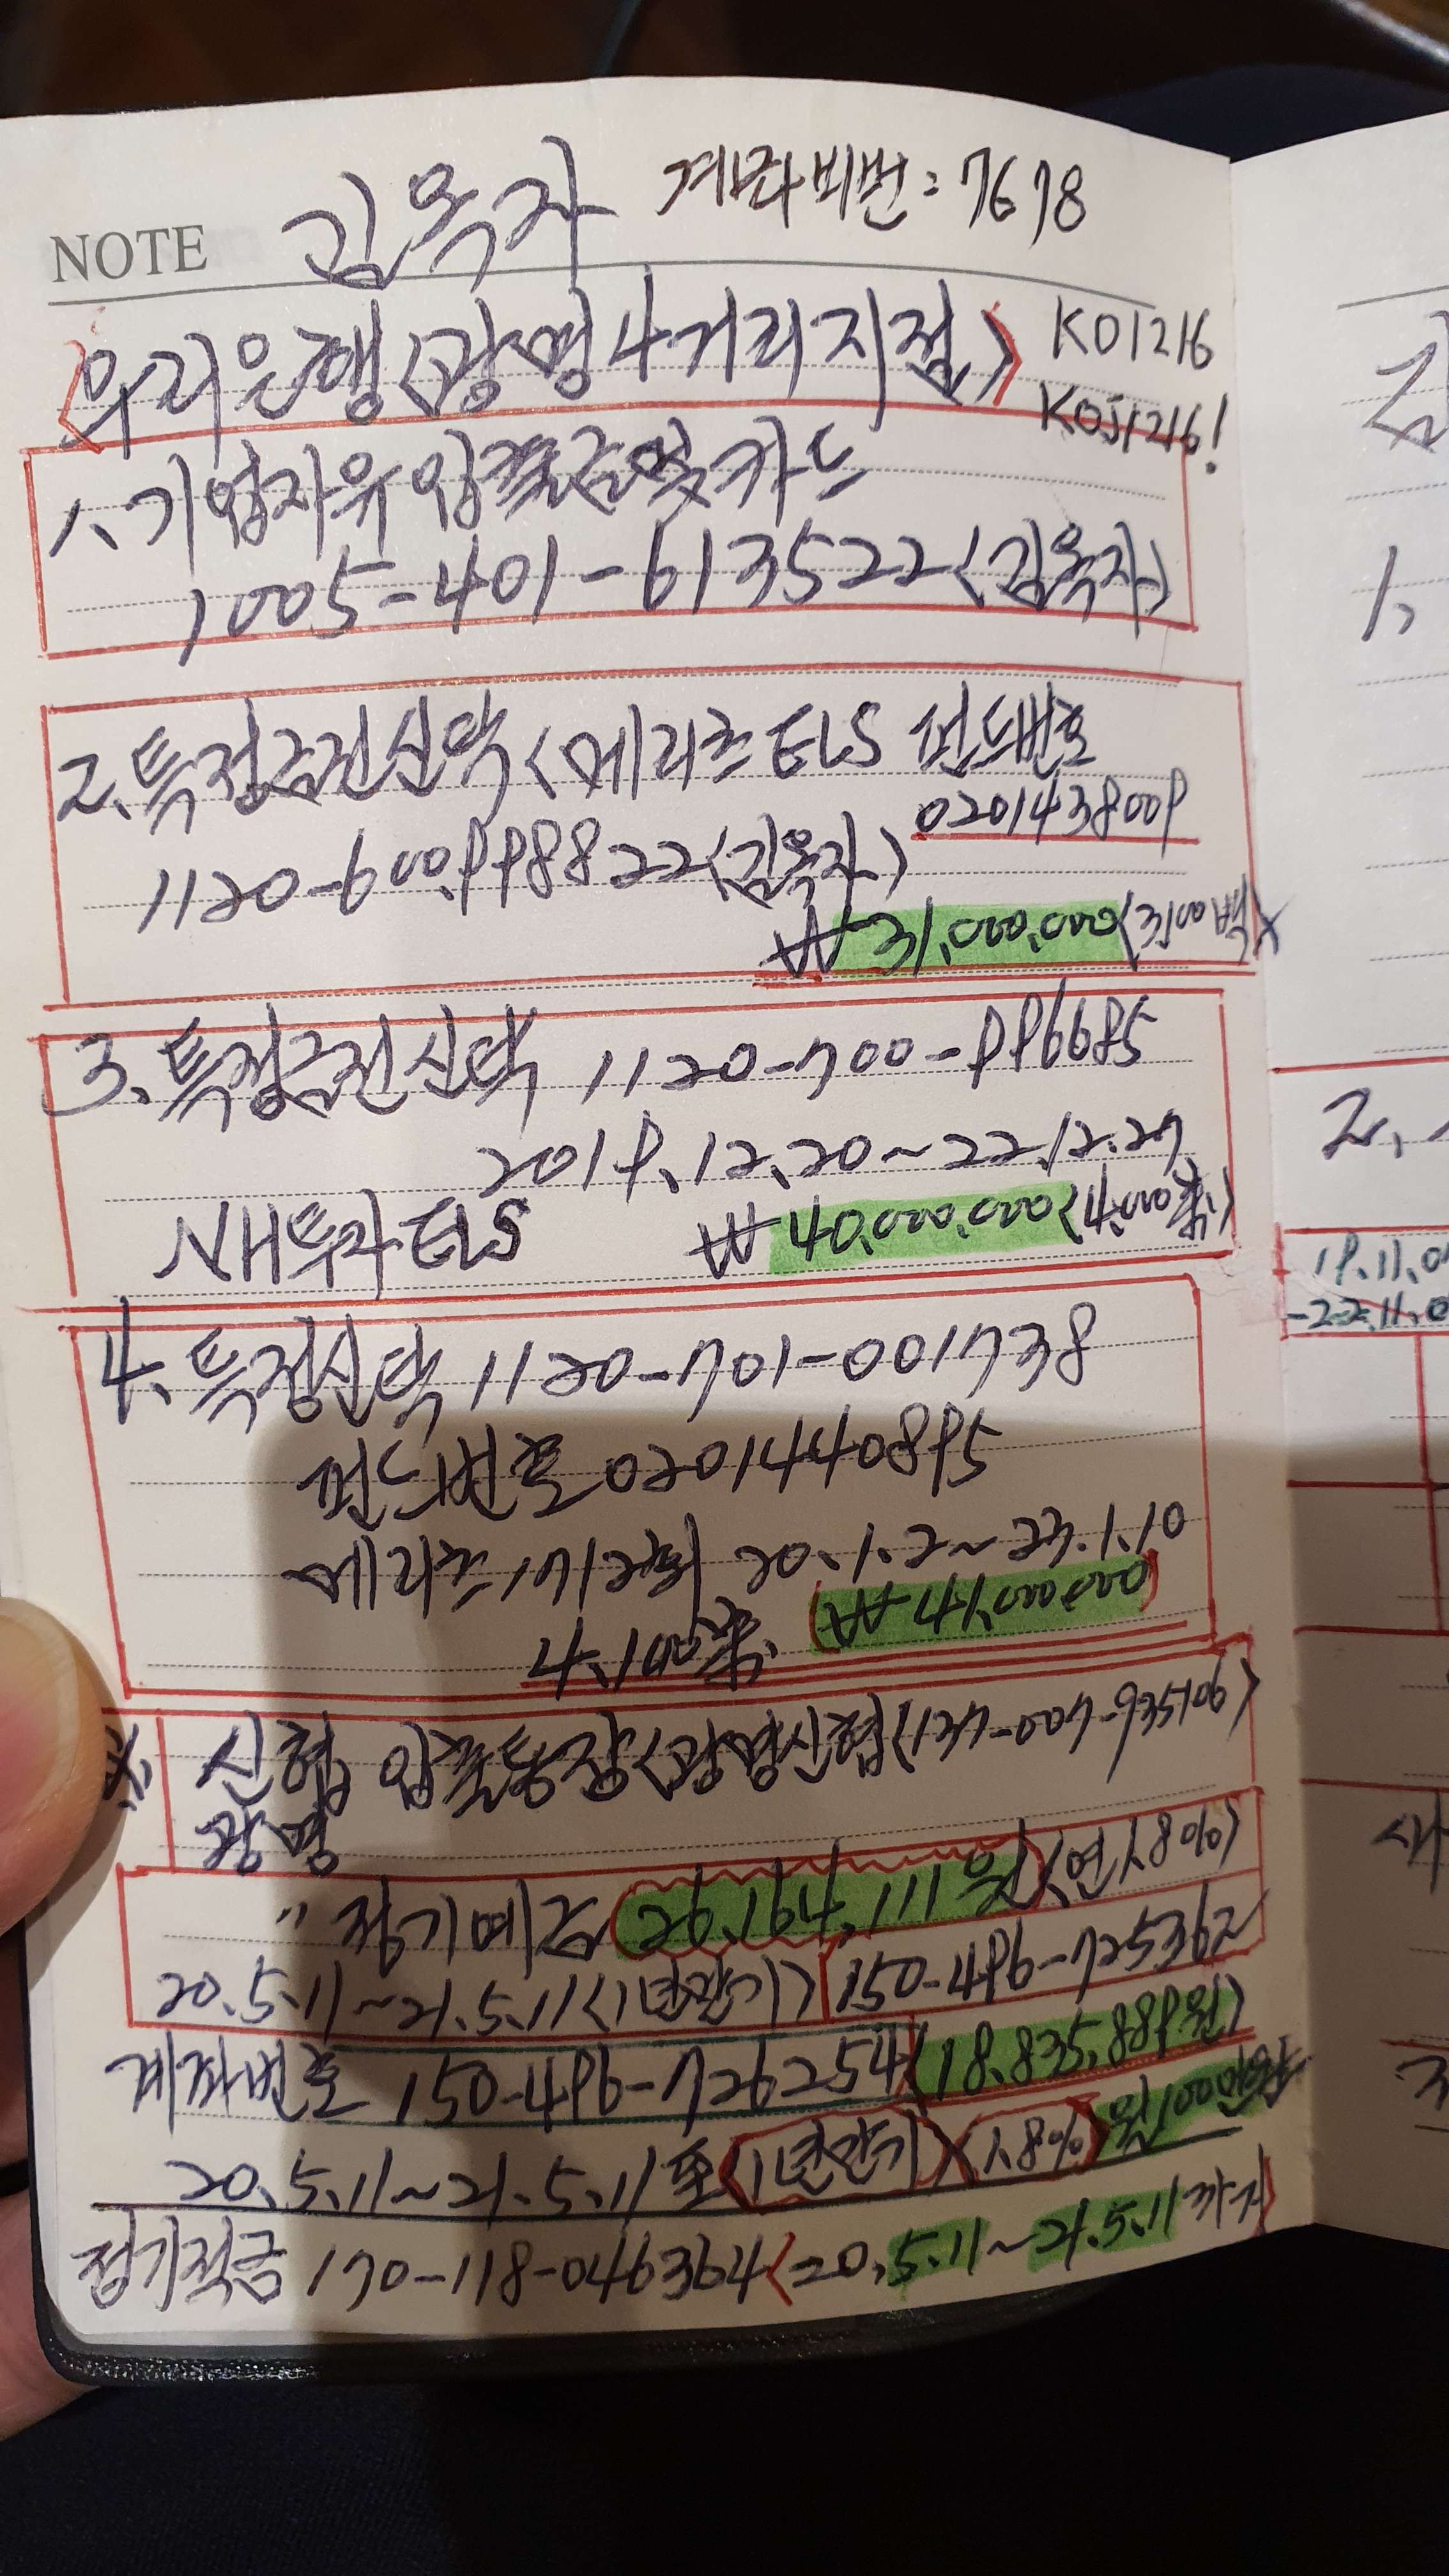 NOTE 김옥자 계좌비번: 7678
우리은행<광명4거리지점> KOJ1216
KOJ1216!
1, 기업자유입출금및카드
1005-401-613522<김옥자>
2, 특정금전신탁<메리츠ELS 펀드번호
0201438009
1120-600,998822<김옥자>
₩31,000,000<3100백>
3, 특정금전신탁 1120-700-996685
2019.12.20~22.12.27
NH투자ELS ₩40,000,000
4, 특정신탁 1120-701-001738
펀드번호 0201440895
메리츠1712회 20.1.2~23.1.10
(₩41,000,000)
신협 입출통장<광명신협(137-007-635106>
광명
" 정기예금 26,164,111원(연1.8%)
20.5.11~21.5.11<1년만기> 150-496-725362
계좌번호 150-496-726254(18,835,889원)
20.5.11~21.5.11 <1년만기>(1.8%)
정기적금 170-118-046364<20,5.11~21.5.11까지
1,
2,
19.11.0
-22.11.0